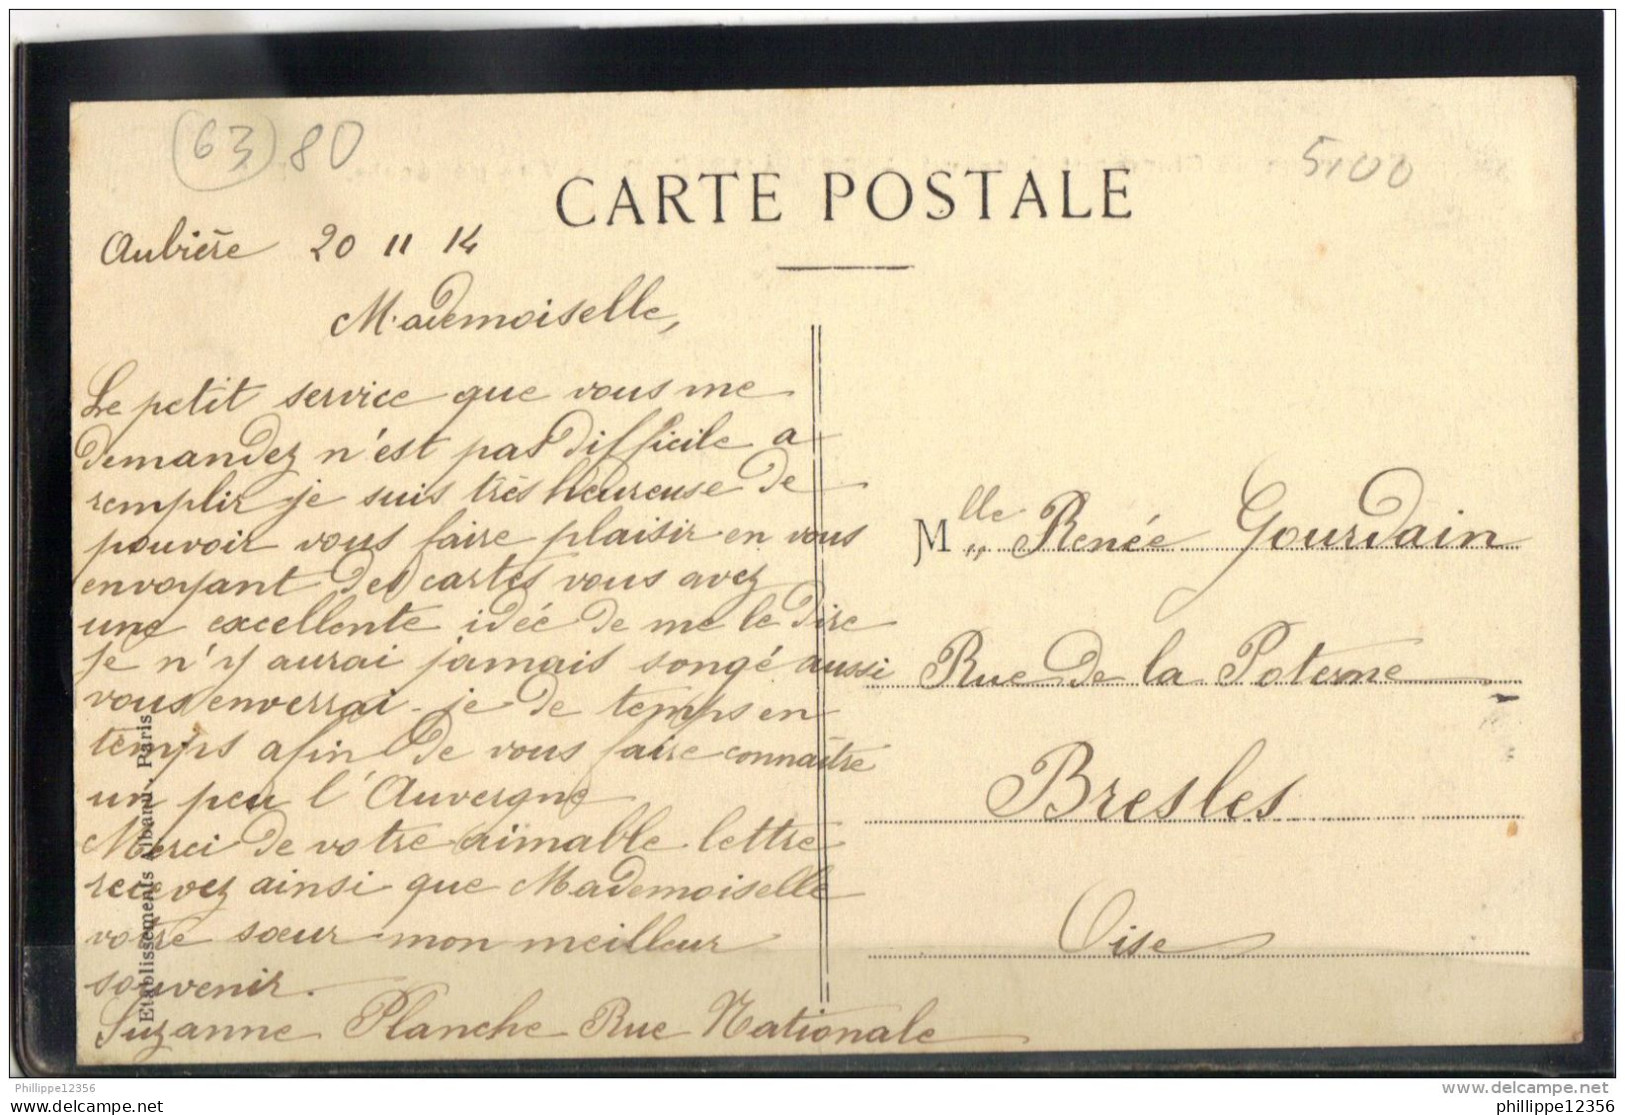 (63) 80
5,00
CARTE POSTALE
Aubière 20 11 14
Mademoiselle,
Le petit service que vous me
demandez n'est pas difficile a
remplir je suis très heureuse de
pouvoir vous faire plaisir en vous
envoyant des cartes vous avez
une excellente idée de me le dire
je n'y aurai jamais songé aussi
vous enverrai-je de temps en
temps afin de vous faire connaître
un peu l'Auvergne
Merci de votre aimable lettre
recevez ainsi que Mademoiselle
votre sœur mon meilleur
souvenir.
Suzanne Planche Rue Nationale
Etablissements Alband, Paris
Mlle Renée Gourdain
Rue de la Poterne
Bresles
Oise
Philippe12356
philippe12356
www.delcampe.net
philippe12356